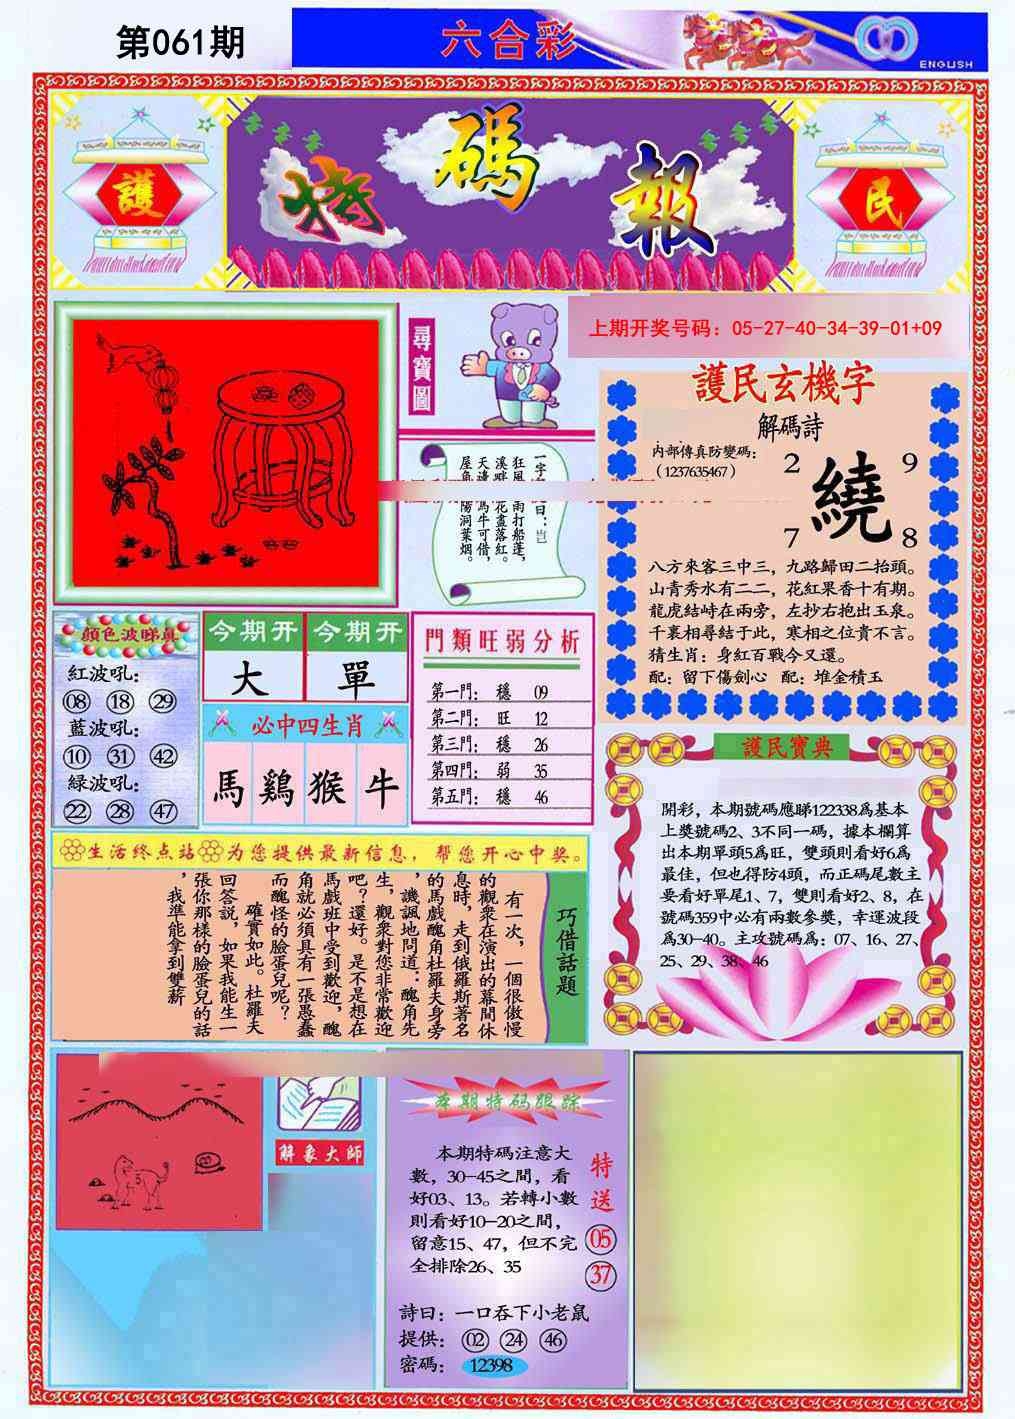 第061期
六合彩
ENGLISH
護
特碼報
民
尋寶圖
上期开奖号码：05-27-40-34-39-01+09
護民玄機字
解碼詩
内部傳真防變碼：
（1237635467）
2
9
繞
7
8
八方來客三中三，九路歸田二抬頭。
山青秀水有二二，花紅果香十有期。
龍虎結峙在兩旁，左抄右抱出玉泉。
千裏相尋結于此，寒相之位貴不言。
猜生肖：身紅百戰今又還。
配：留下傷劍心 配：堆金積玉
顔色波睇真
紅波吼：
08 18 29
藍波吼：
10 31 42
緑波吼：
22 28 47
今期開
大
今期開
單
必中四生肖
馬 鷄 猴 牛
門類旺弱分析
第一門： 穩 09
第二門： 旺 12
第三門： 穩 26
第四門： 弱 35
第五門： 穩 46
護民寶典
開彩，本期號碼應睇122338爲基本
上獎號碼2、3不同一碼，據本欄算
出本期單頭5爲旺，雙頭則看好6爲
最佳，但也得防4頭，而正碼尾數主
要看好單尾1、7，雙則看好2、8，在
號碼359中必有兩數參獎，幸運波段
爲30-40。主攻號碼爲：07、16、27、
25、29、38、46
生活终点站 为您提供最新信息，帮您开心中奖。
巧借話題
有一次，一個很傲慢
的觀衆在演出的幕間休
息時，走到俄羅斯著名
的馬戲醜角杜羅夫身旁
，譏諷地問道：醜角先
生，觀衆對您非常歡迎
吧？還好。是不是想在
馬戲班中受到歡迎，醜
角就必須具有一張愚蠢
而醜怪的臉蛋兒呢？
確實如此。杜羅夫
回答説，如果我能生一
張你那樣的臉蛋兒的話
，我準能拿到雙薪
解象大師
本期特码跟踪
本期特碼注意大
數，30-45之間，看
好03、13。若轉小數
則看好10-20之間，
留意15、47，但不完
全排除26、35
特送
05
37
詩曰：一口吞下小老鼠
提供： 02 24 46
密碼： 12398